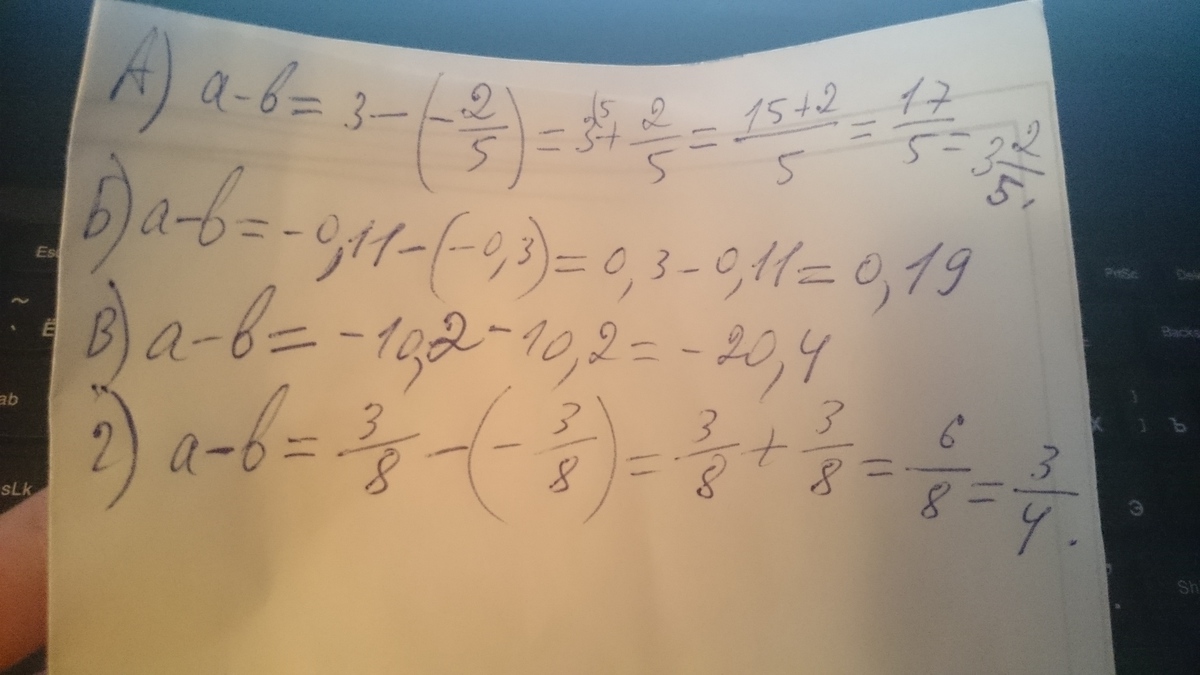 А) a-b = 3-(-2/5) = 3^15+2/5 = 15+2/5 = 17/5 = 3 2/5.
Б) a-b = -0,11-(-0,3) = 0,3-0,11 = 0,19
В) a-b = -10,2-10,2 = -20,4
Г) a-b = 3/8-(-3/8) = 3/8+3/8 = 6/8 = 3/4.
Esc
~
` Ё
ab
sLk
PrtSc
De
Backs
}
Х ] Ъ
Э
Sh